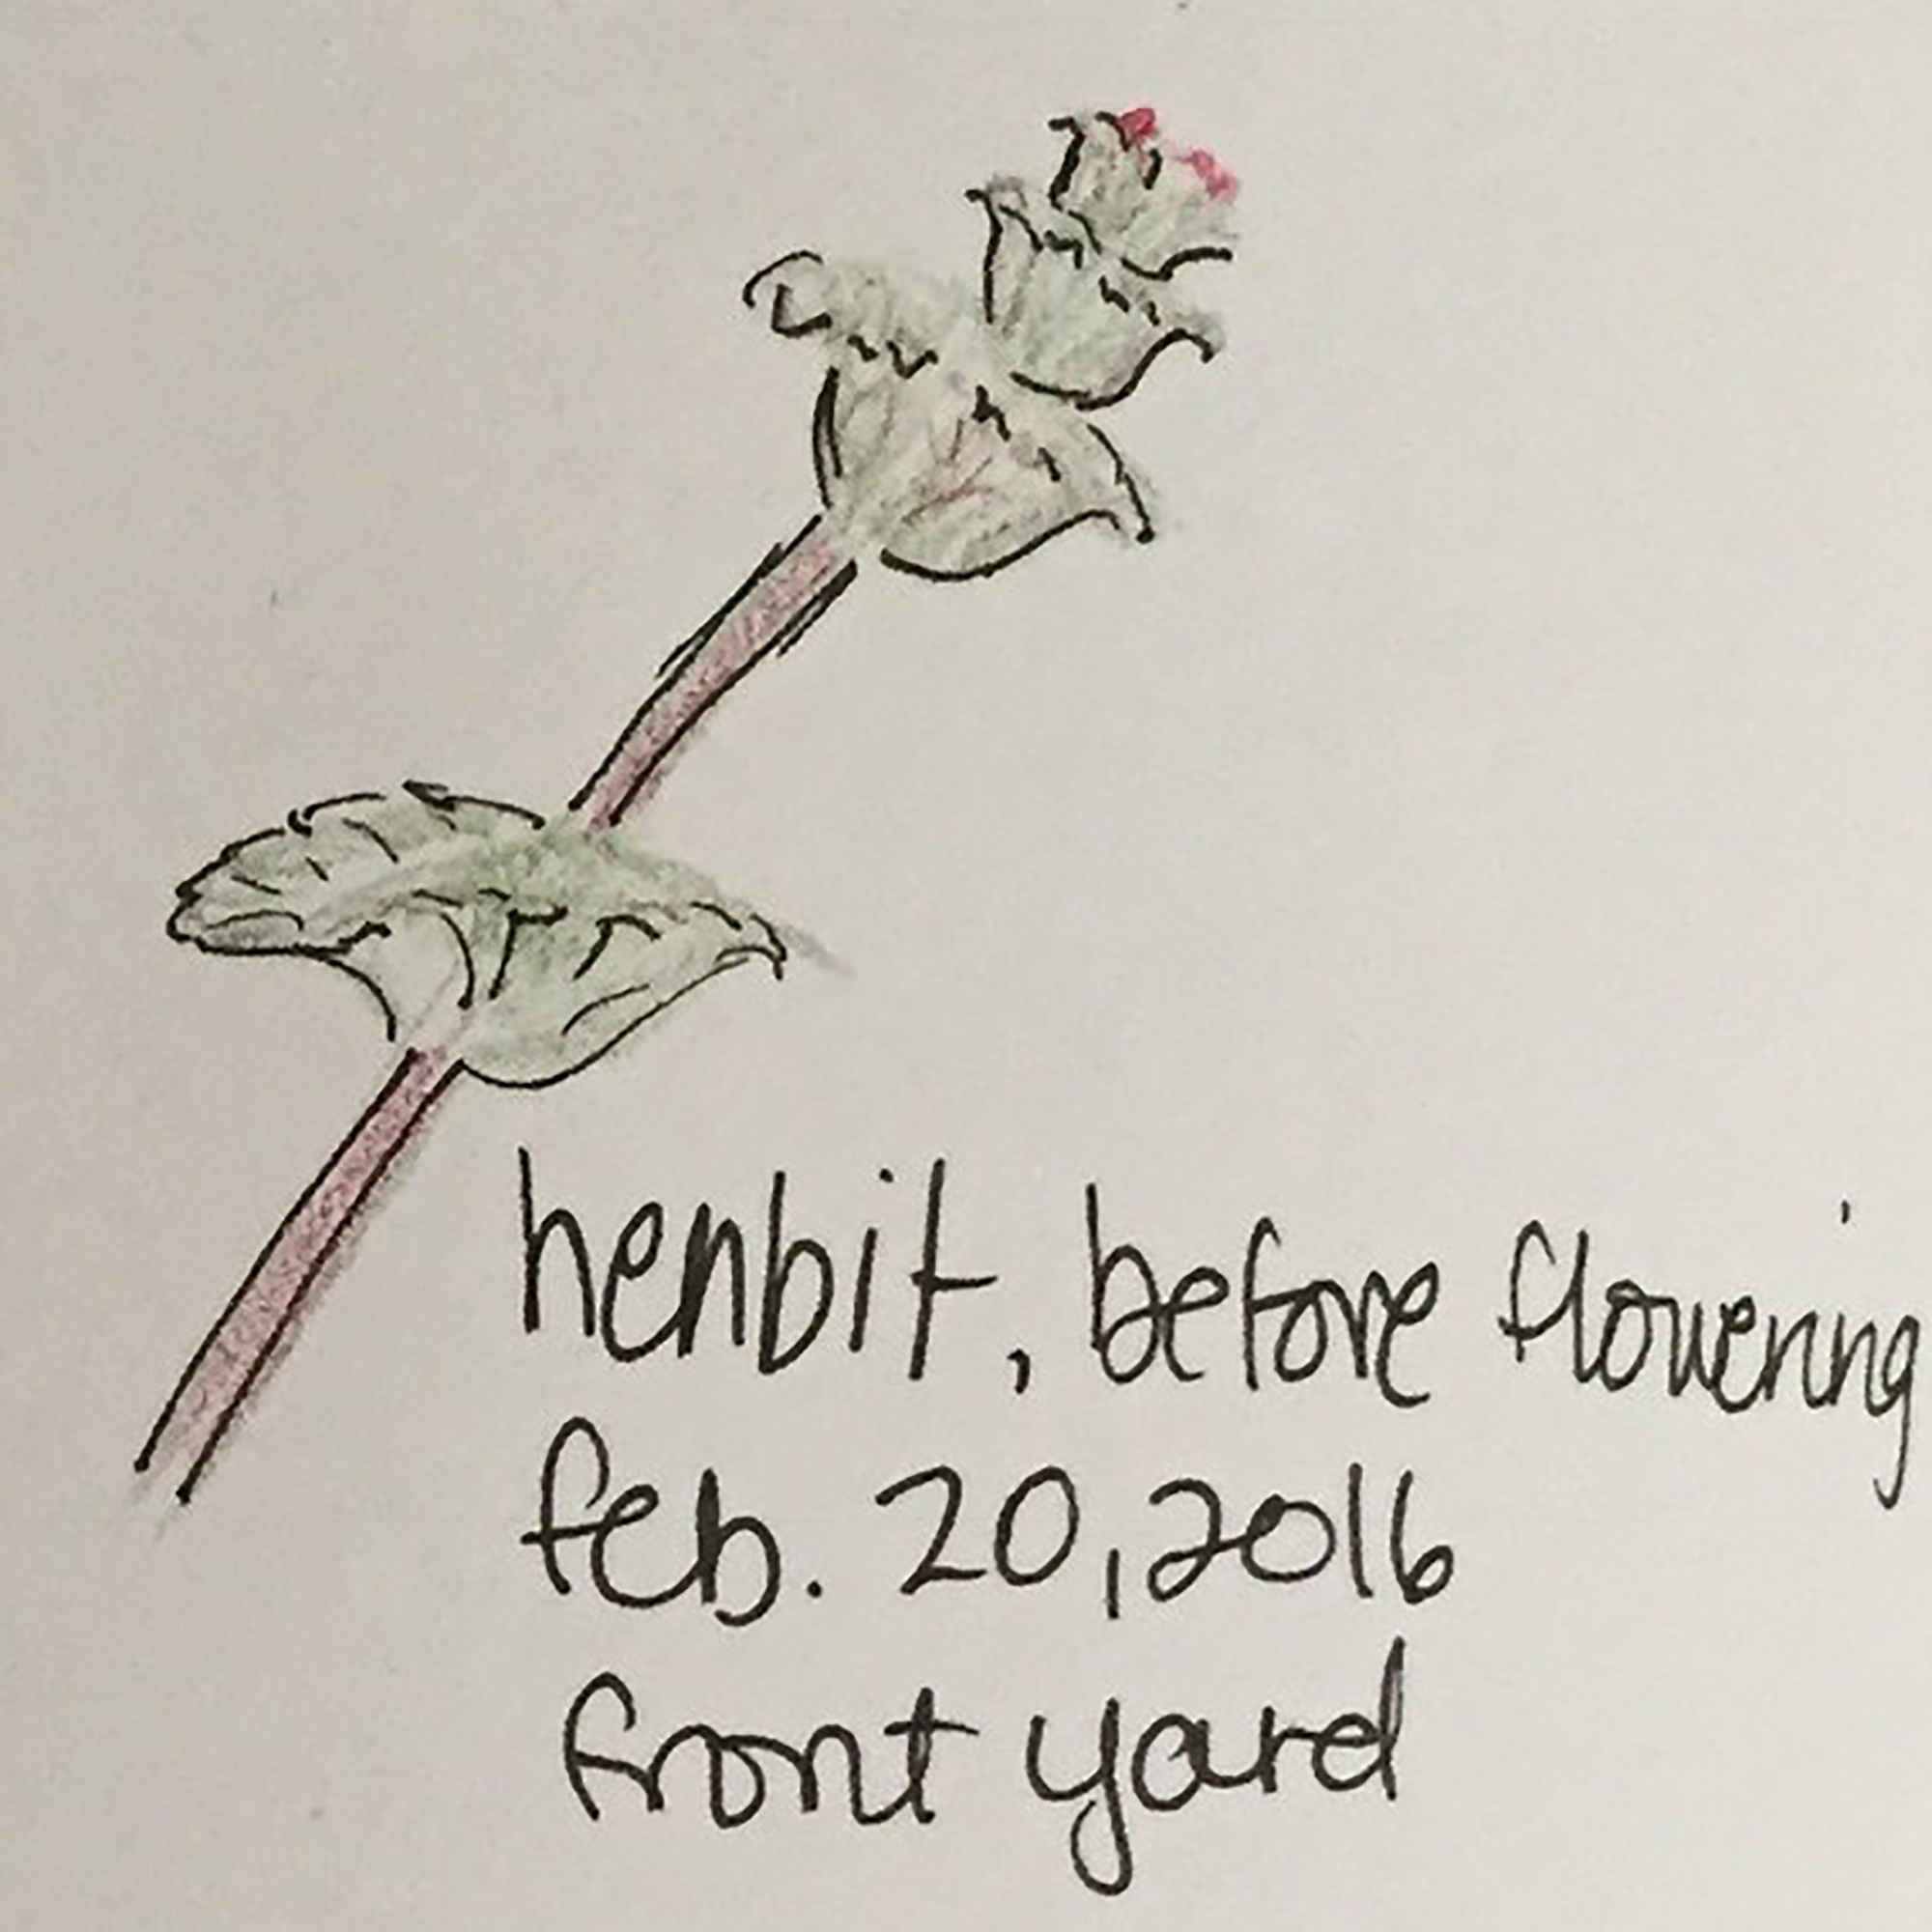 henbit, before flowering
feb. 20, 2016
front yard